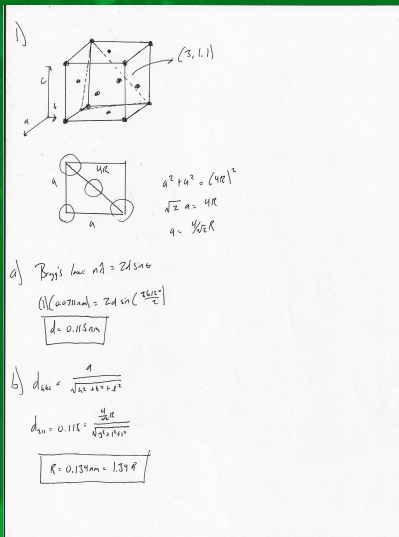 1)
(3,1,1)
c
a b
4R
a
a
a² + a² = (4R)²
√2 a = 4R
a = 4/√2 R
a) Bragg's law: nλ = 2d sin θ
(1)(0.0711nm) = 2d sin(
2
d = 0.115nm
b) d = a / √h² + k² + l²
d₃₁₁ = 0.115 = 4/√2 R / √3² + 1² + 1²
R = 0.134nm = 1.34 Å